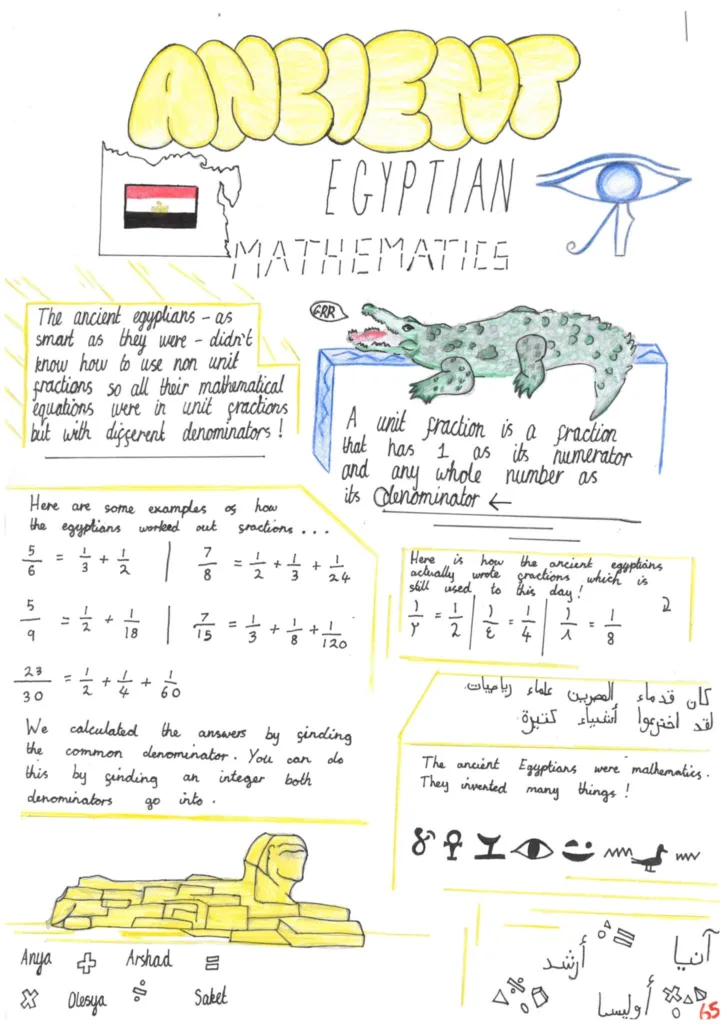 ANCIENT
EGYPTIAN
MATHEMATICS
The ancient egyptians - as
smart as they were - didn't
know how to use non unit
fractions so all their mathematical
equations were in unit fractions
but with different denominators !
GRR
A unit fraction is a fraction
that has 1 as its numerator
and any whole number as
its denominator ←
Here are some examples of how
the egyptians worked out fractions . . .
5/6 = 1/3 + 1/2 | 7/8 = 1/2 + 1/3 + 1/24
5/9 = 1/2 + 1/18 | 7/15 = 1/3 + 1/8 + 1/120
23/30 = 1/2 + 1/4 + 1/60
We calculated the answers by finding
the common denominator. You can do
this by finding an integer both
denominators go into.
Here is how the ancient egyptians
actually wrote fractions which is
still used to this day !
١/٢ = 1/2 | ١/٤ = 1/4 | ١/٨ = 1/8
كان قدماء المصريين علماء رياضيات.
لقد اخترعوا أشياء كثيرة.
The ancient Egyptians were mathematics.
They invented many things !
Anya + Arshad =
× Olesya ÷ Saket
آنيا
أرشد
أوليسا
65